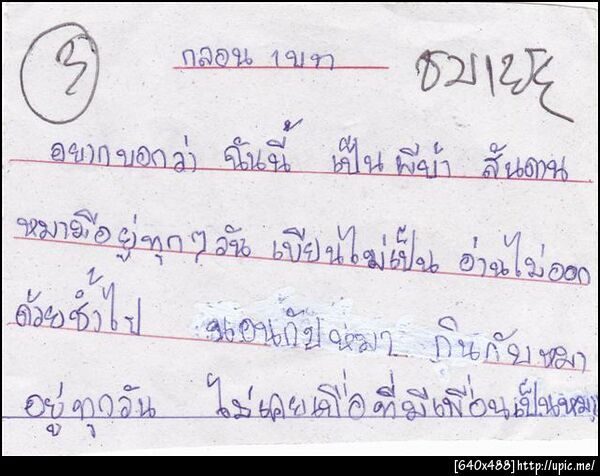 กลอน 1 บท
อยากบอกว่า ฉันนี้ เป็น ผีบ้า สันดาน
หมามีอยู่ทุกๆวัน เขียนไม่เป็น อ่านไม่ออก
ด้วยซ้ำไป นอนกับหมา กินกับหมา
อยู่ทุกวัน ไม่เคยเบื่อที่มีเพื่อนเป็นหมา
[640x488]http://upic.me/